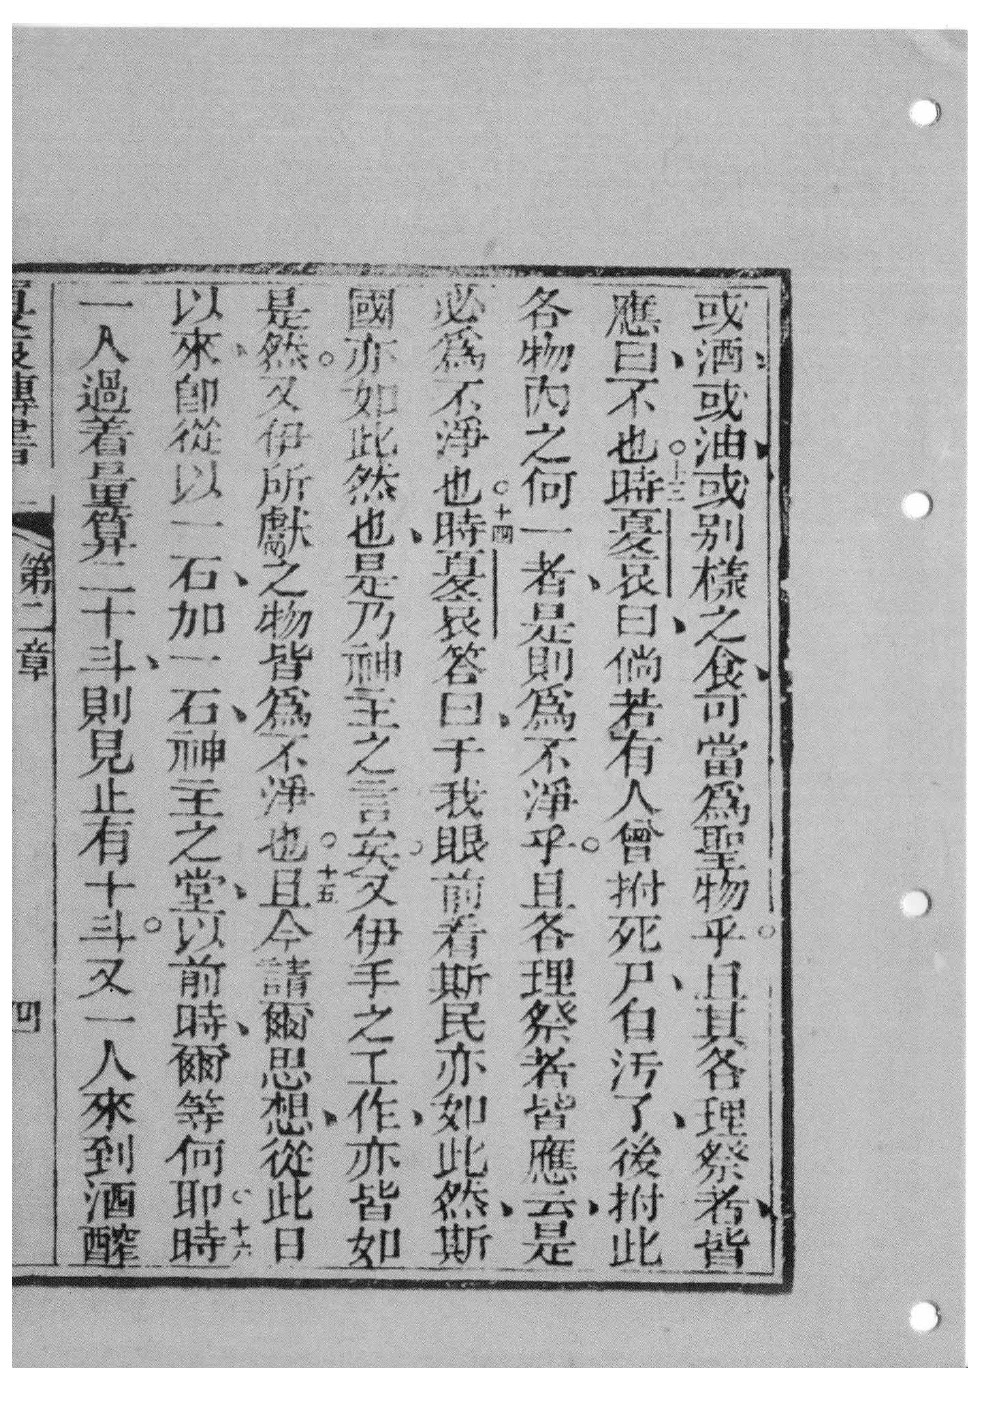 或酒、或油、或別樣之食、可當為聖物乎。且其各理祭者、皆
應曰、不也。十三時戞哀曰、倘若有人曾拊死尸、自污了、後拊此
各物內之何一者、是則為不淨乎。且各理祭者皆應云、是
必為不淨也。十四時戞哀答曰、于我眼前看斯民亦如此然、斯
國亦如此然也、是乃神主之言矣。又伊手之工作、亦皆如
是然。又伊所獻之物皆為不淨也。十五且今請爾思想、從此日
以來、卽從以一石、加一石、神主之堂、以前時、爾等何耶。十六時
一人過着量算二十斗、則見止有十斗。又一人來到酒醡
第二章
四